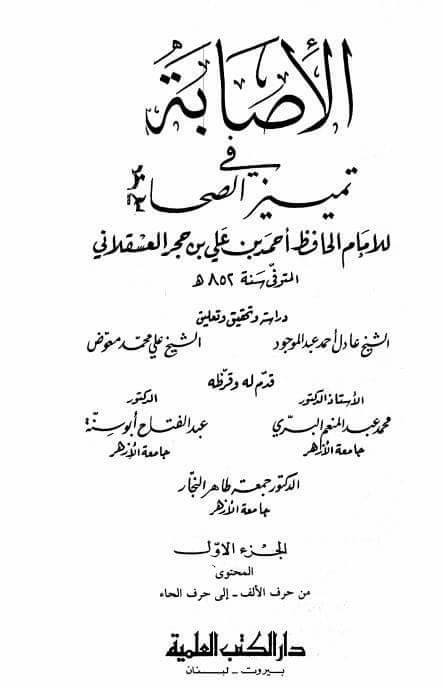 الأصابة
في
تمييز الصحابة
للإمام الحافظ أحمد بن علي بن حجر العسقلاني
المتوفى سنة ٨٥٢ هـ
دراسة وتحقيق وتعليق
الشيخ عادل أحمد عبد الموجود الشيخ علي محمد معوض
قدم له وقرظه
الأستاذ الدكتور الدكتور
محمد عبد المنعم البري عبد الفتاح أبو سنة
جامعة الأزهر جامعة الأزهر
الدكتور جمعة طاهر النجار
جامعة الأزهر
الجزء الأول
المحتوى
من حرف الألف - إلى حرف الحاء
دار الكتب العلمية
بيروت - لبنان